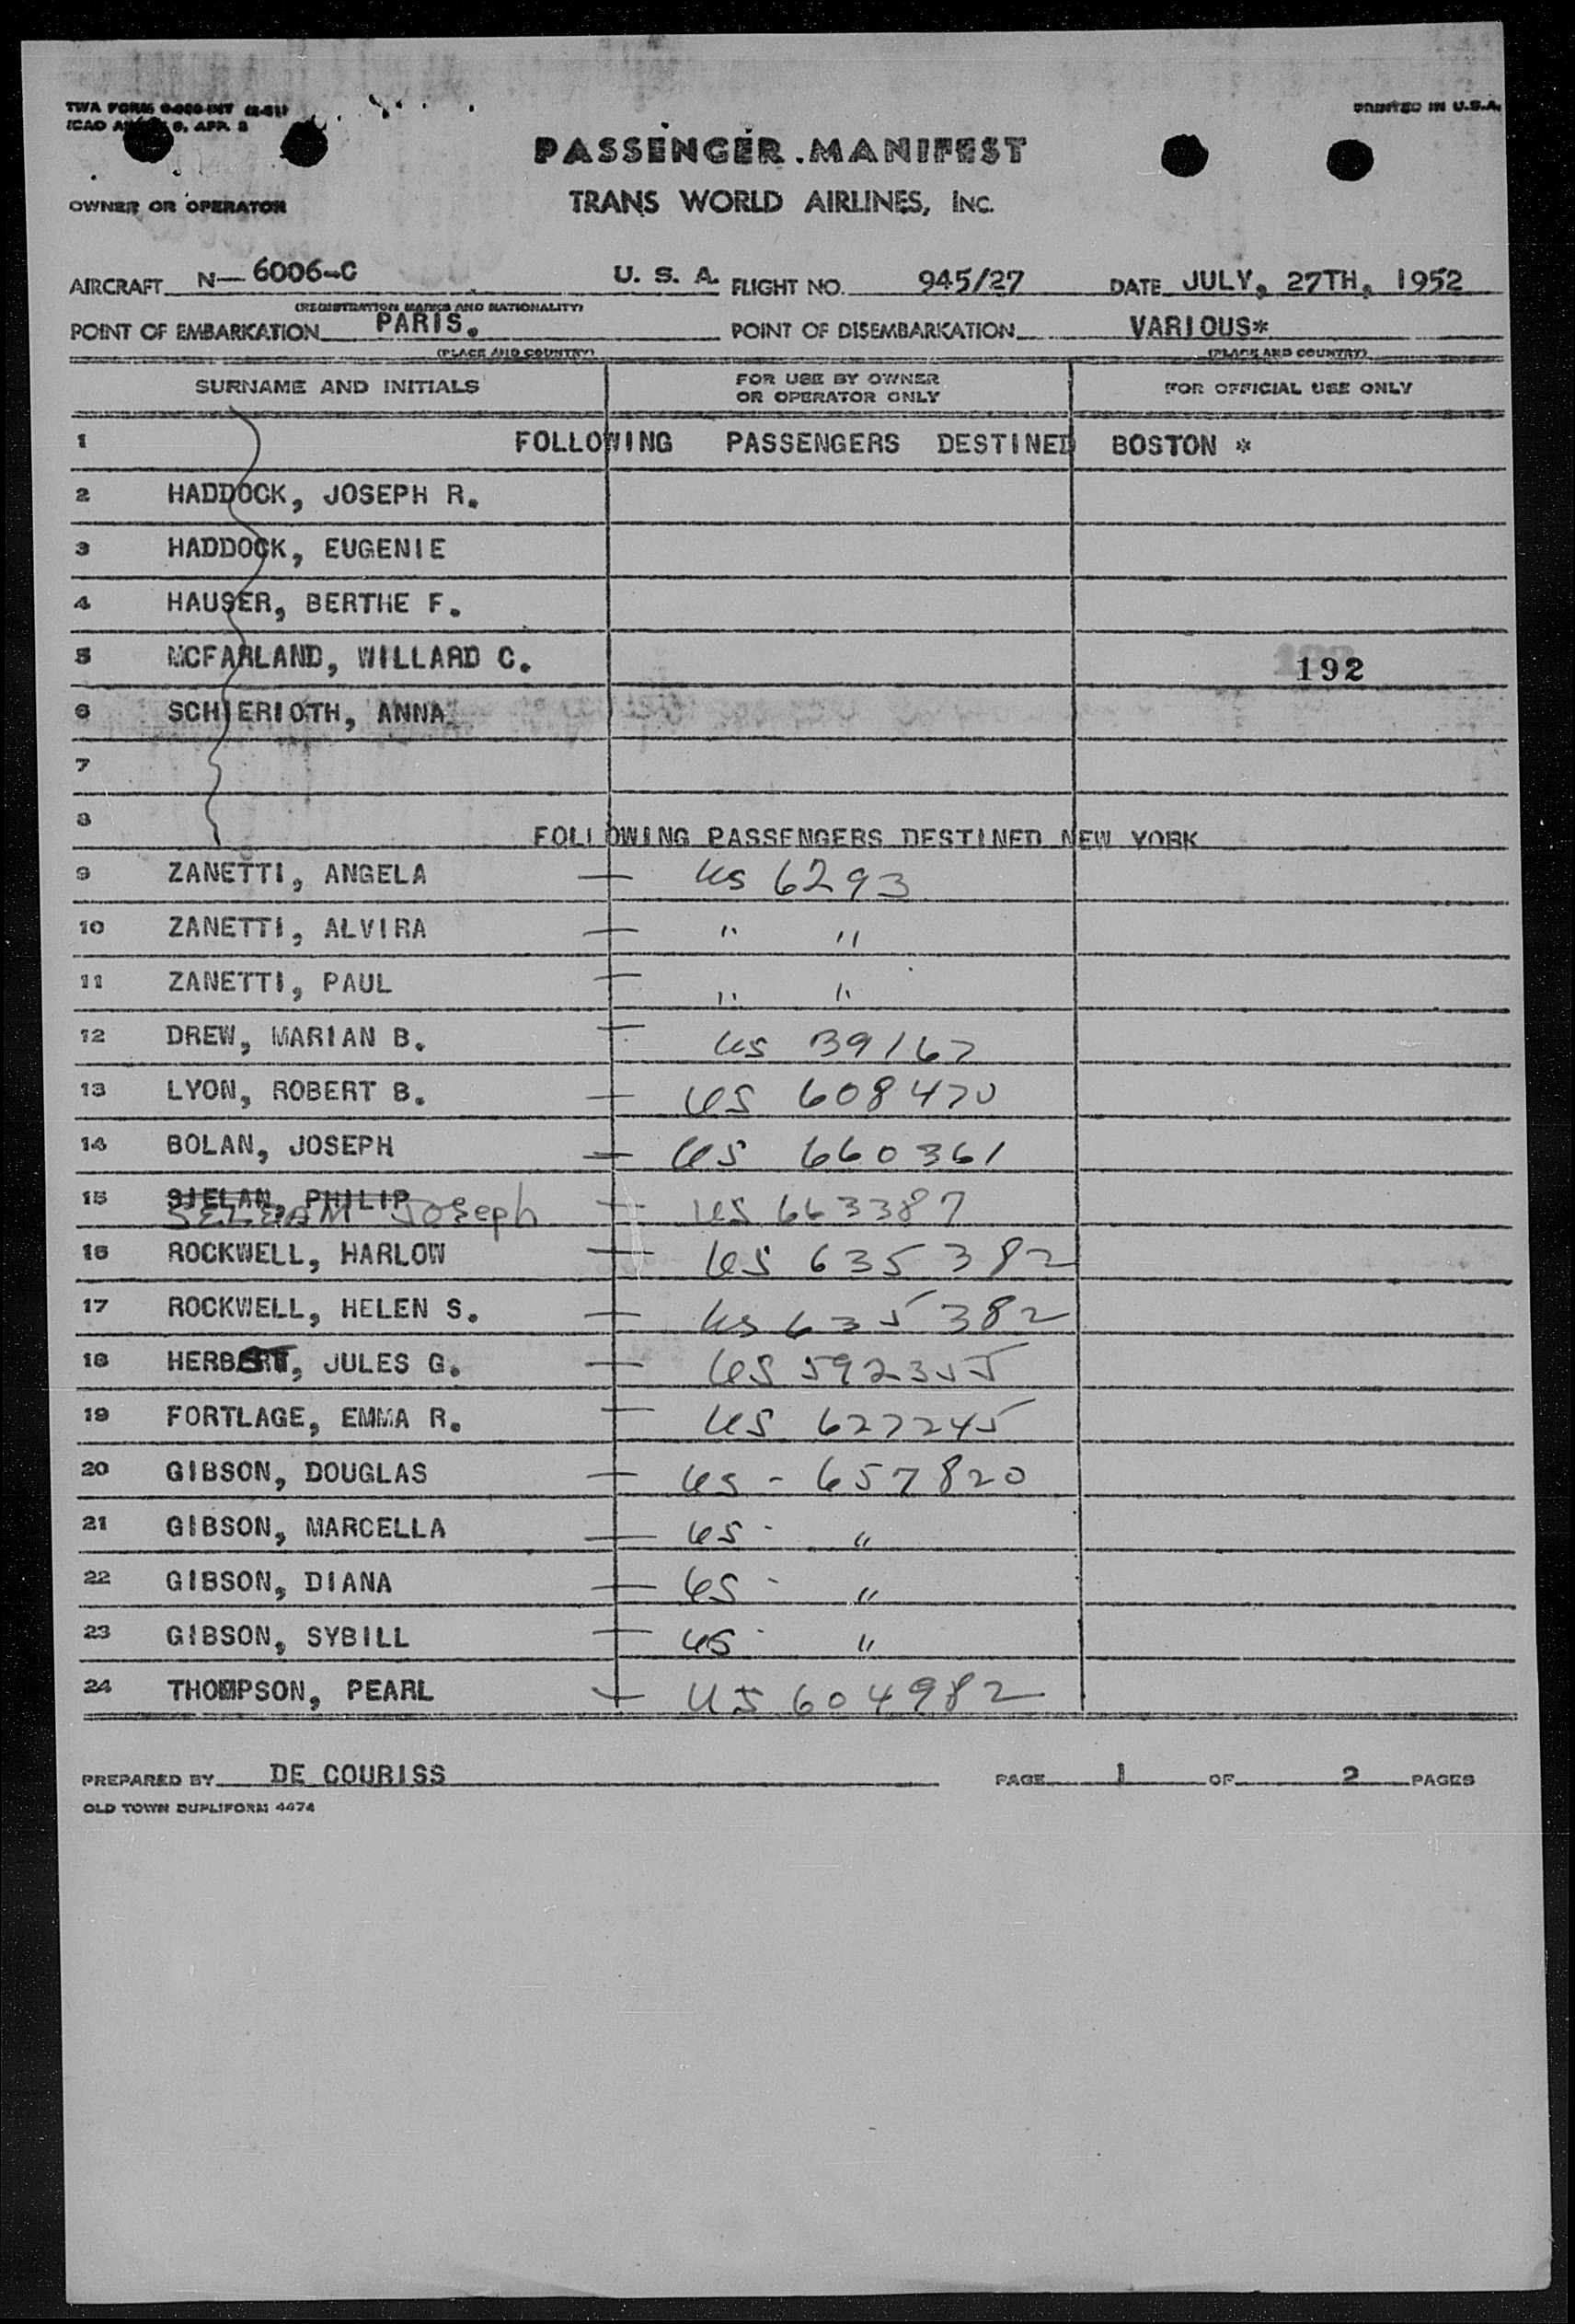 TWA FORM (2-51)
PRINTED IN U.S.A.
ICAO 9, APP. 2
PASSENGER MANIFEST
OWNER OR OPERATOR
TRANS WORLD AIRLINES, INC.
AIRCRAFT N- 6006-C U. S. A. FLIGHT NO. 945/27 DATE JULY, 27TH, 1952
(REGISTRATION MARKS AND NATIONALITY)
POINT OF EMBARKATION PARIS. POINT OF DISEMBARKATION VARIOUS*
(PLACE AND COUNTRY) (PLACE AND COUNTRY)
SURNAME AND INITIALS FOR USE BY OWNER OR OPERATOR ONLY FOR OFFICIAL USE ONLY
1 FOLLOWING PASSENGERS DESTINED BOSTON *
2 HADDOCK, JOSEPH R.
3 HADDOCK, EUGENIE
4 HAUSER, BERTHE F.
5 MCFARLAND, WILLARD C. 192
6 SCHIERIOTH, ANNA
7
8 FOLLOWING PASSENGERS DESTINED NEW YORK
9 ZANETTI, ANGELA — US 6293
10 ZANETTI, ALVIRA — " "
11 ZANETTI, PAUL — " "
12 DREW, MARIAN B. — US 39167
13 LYON, ROBERT B. — US 608470
14 BOLAN, JOSEPH — US 660361
15 SJELAN, PHILIP Joseph — US 663387
16 ROCKWELL, HARLOW — US 635382
17 ROCKWELL, HELEN S. — US 635382
18 HERBERT, JULES G. — US 592355
19 FORTLAGE, EMMA R. — US 627245
20 GIBSON, DOUGLAS — US - 657820
21 GIBSON, MARCELLA — US - "
22 GIBSON, DIANA — US - "
23 GIBSON, SYBILL — US - "
24 THOMPSON, PEARL — US 604982
PREPARED BY DE COURISS PAGE 1 OF 2 PAGES
OLD TOWN DUPLIFORM 4474